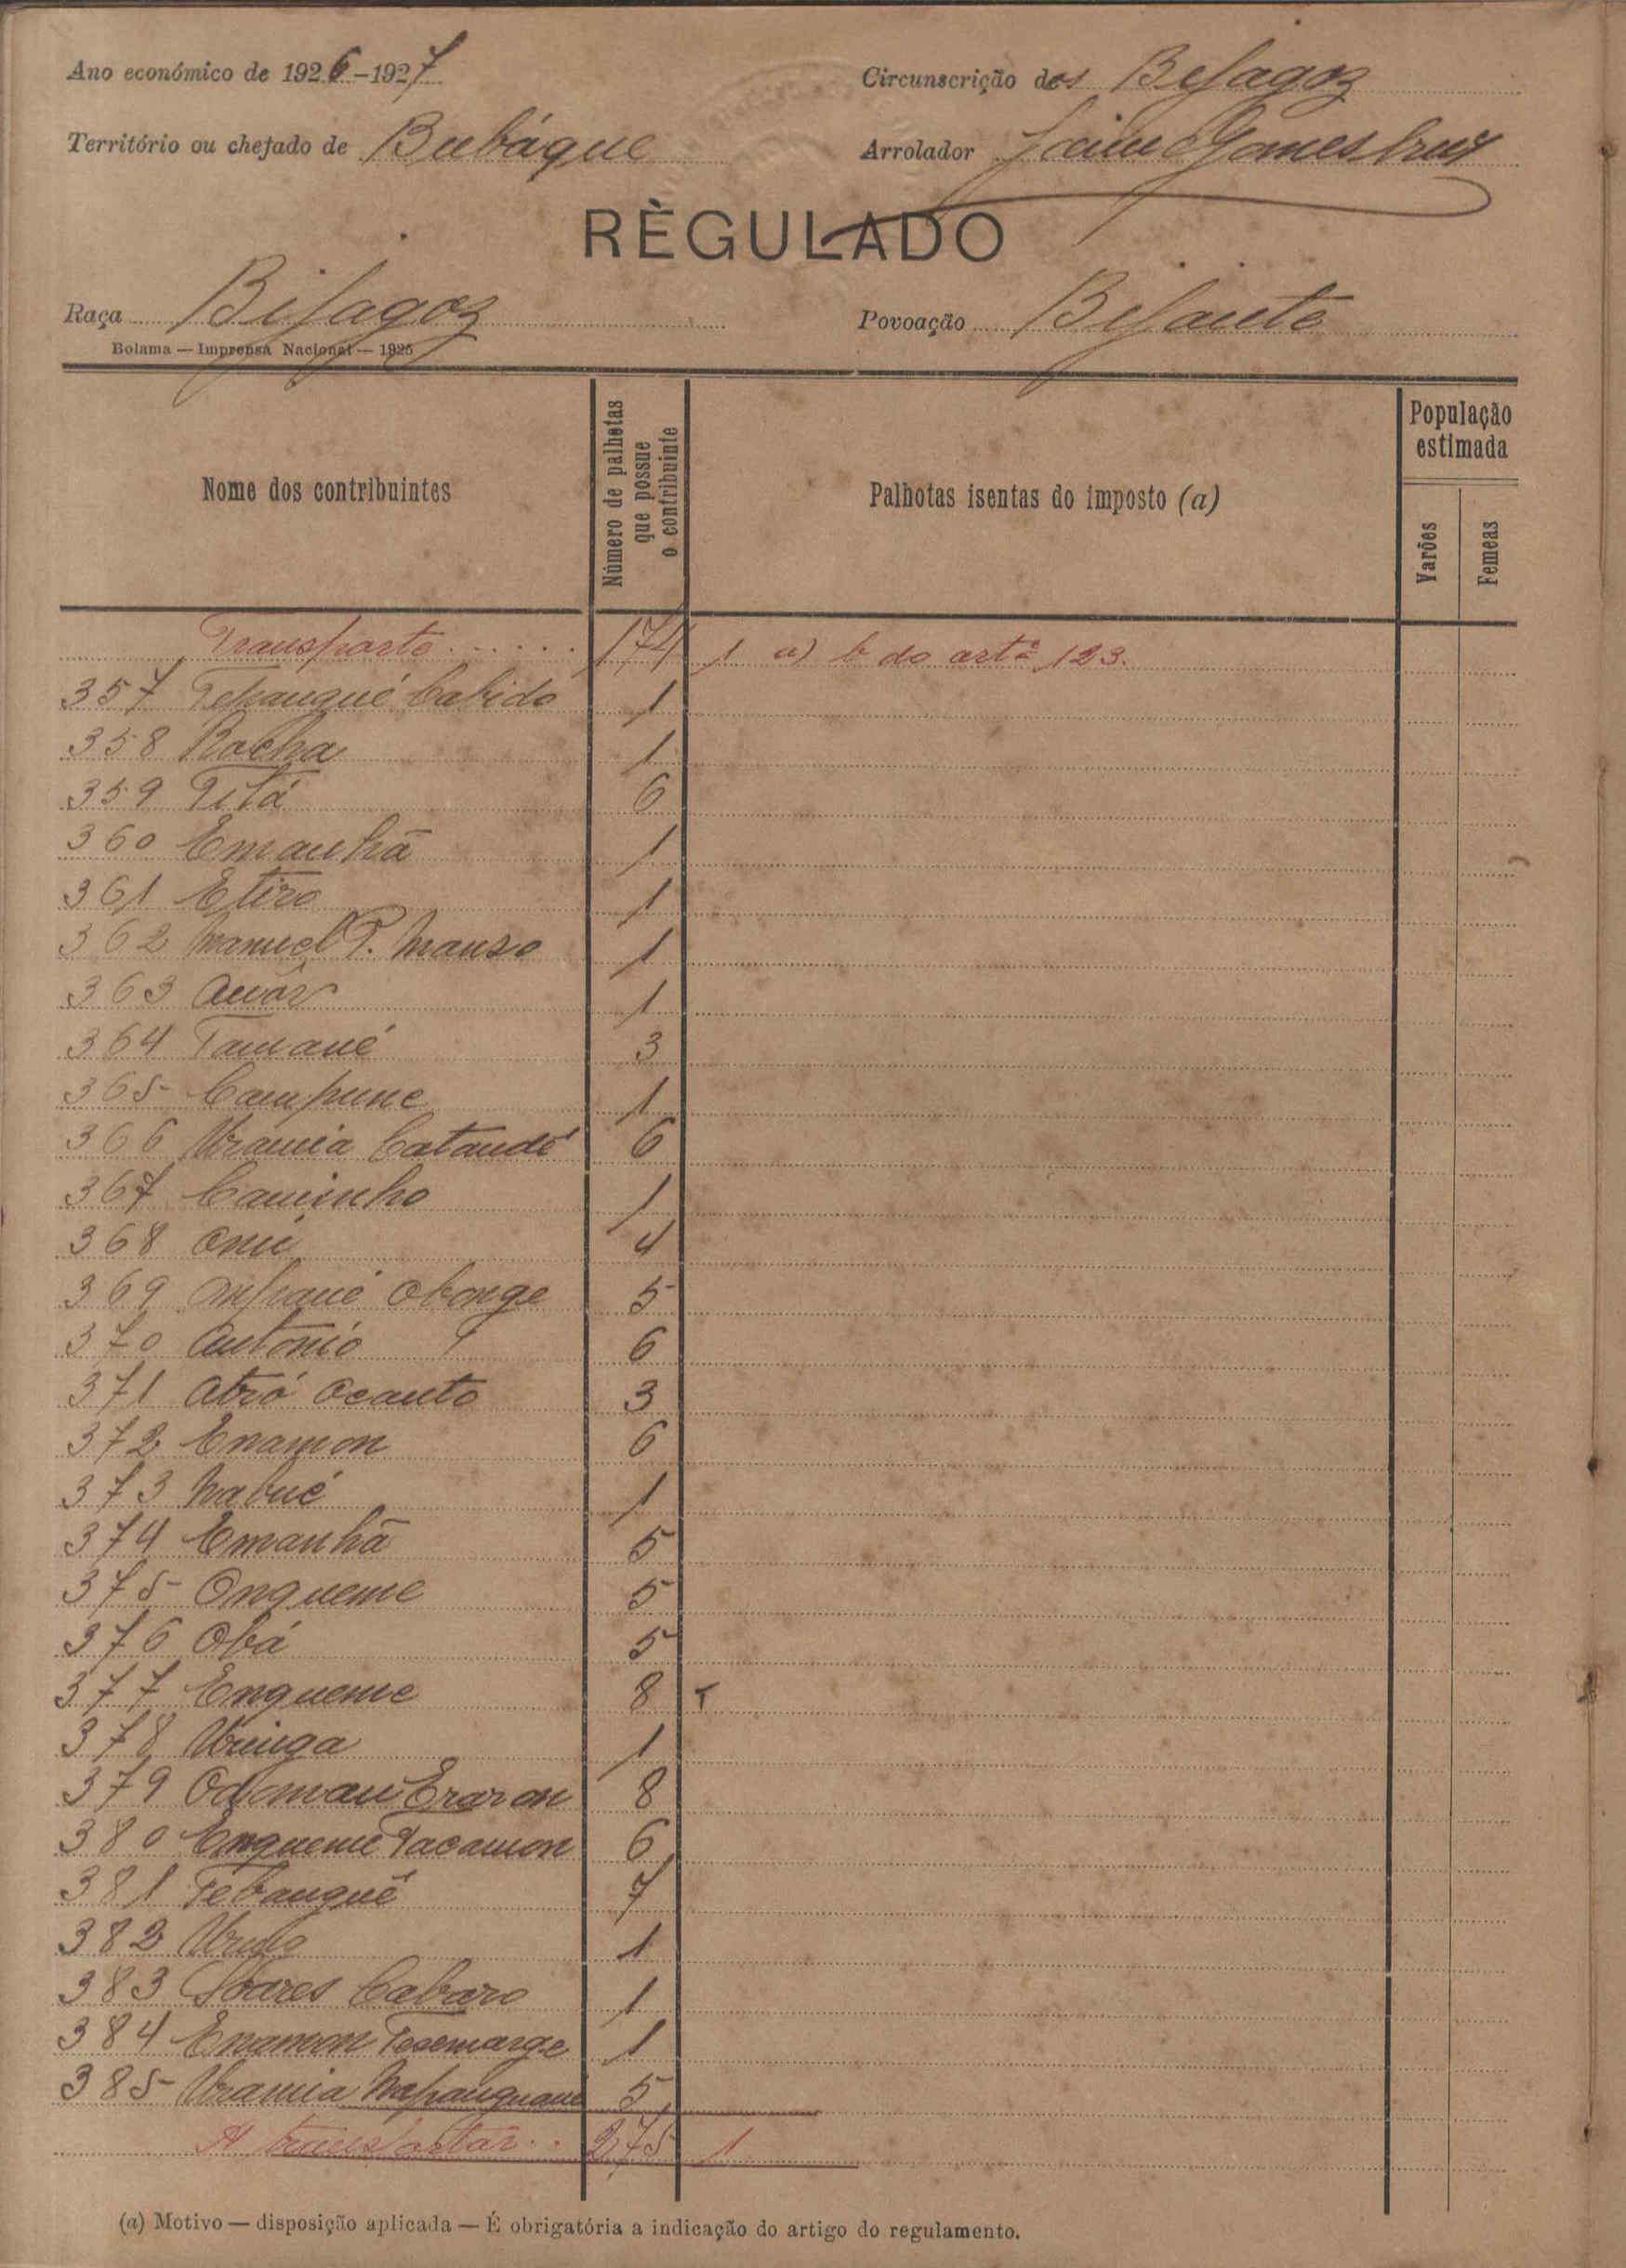 Ano económico de 1926-1927
Circunscrição dos Bijagoz
Território ou chefado de Bubáque
Arrolador Jaime Gomes Cruz
RÈGULADO
Raça Bijagoz
Povoação Bijante
Bolama — Imprensa Nacional — 1925
Nome dos contribuintes
Número de palhotas que possue o contribuinte
Palhotas isentas do imposto (a)
População estimada
Varões
Femeas
Transporte...... 174 1 a) b do artº 123.
357 Cabido 1
358 Rocha 1
359 Titá 6
360 Emanhã 1
361 Etiro 1
362 Manuel P. Manso 1
363 1
364 Tamané 3
365 Campune 1
366 Urania Catandé 6
367 Caminho 1
368 4
369 Obonge 5
370 Antonio 6
371 Atró Ocanto 3
372 Enamon 6
373 Nabué 1
374 Emanhã 5
375 Onqueme 5
376 Obá 5
377 Enqueme 8
378 1
379 8
380 Enqueme Tacamon 6
381 Tebanguê 7
382 1
383 Soares Cabaro 1
384 Enamon 1
385 Urania 5
A transportar.. 275 1
(a) Motivo — disposição aplicada — É obrigatória a indicação do artigo do regulamento.